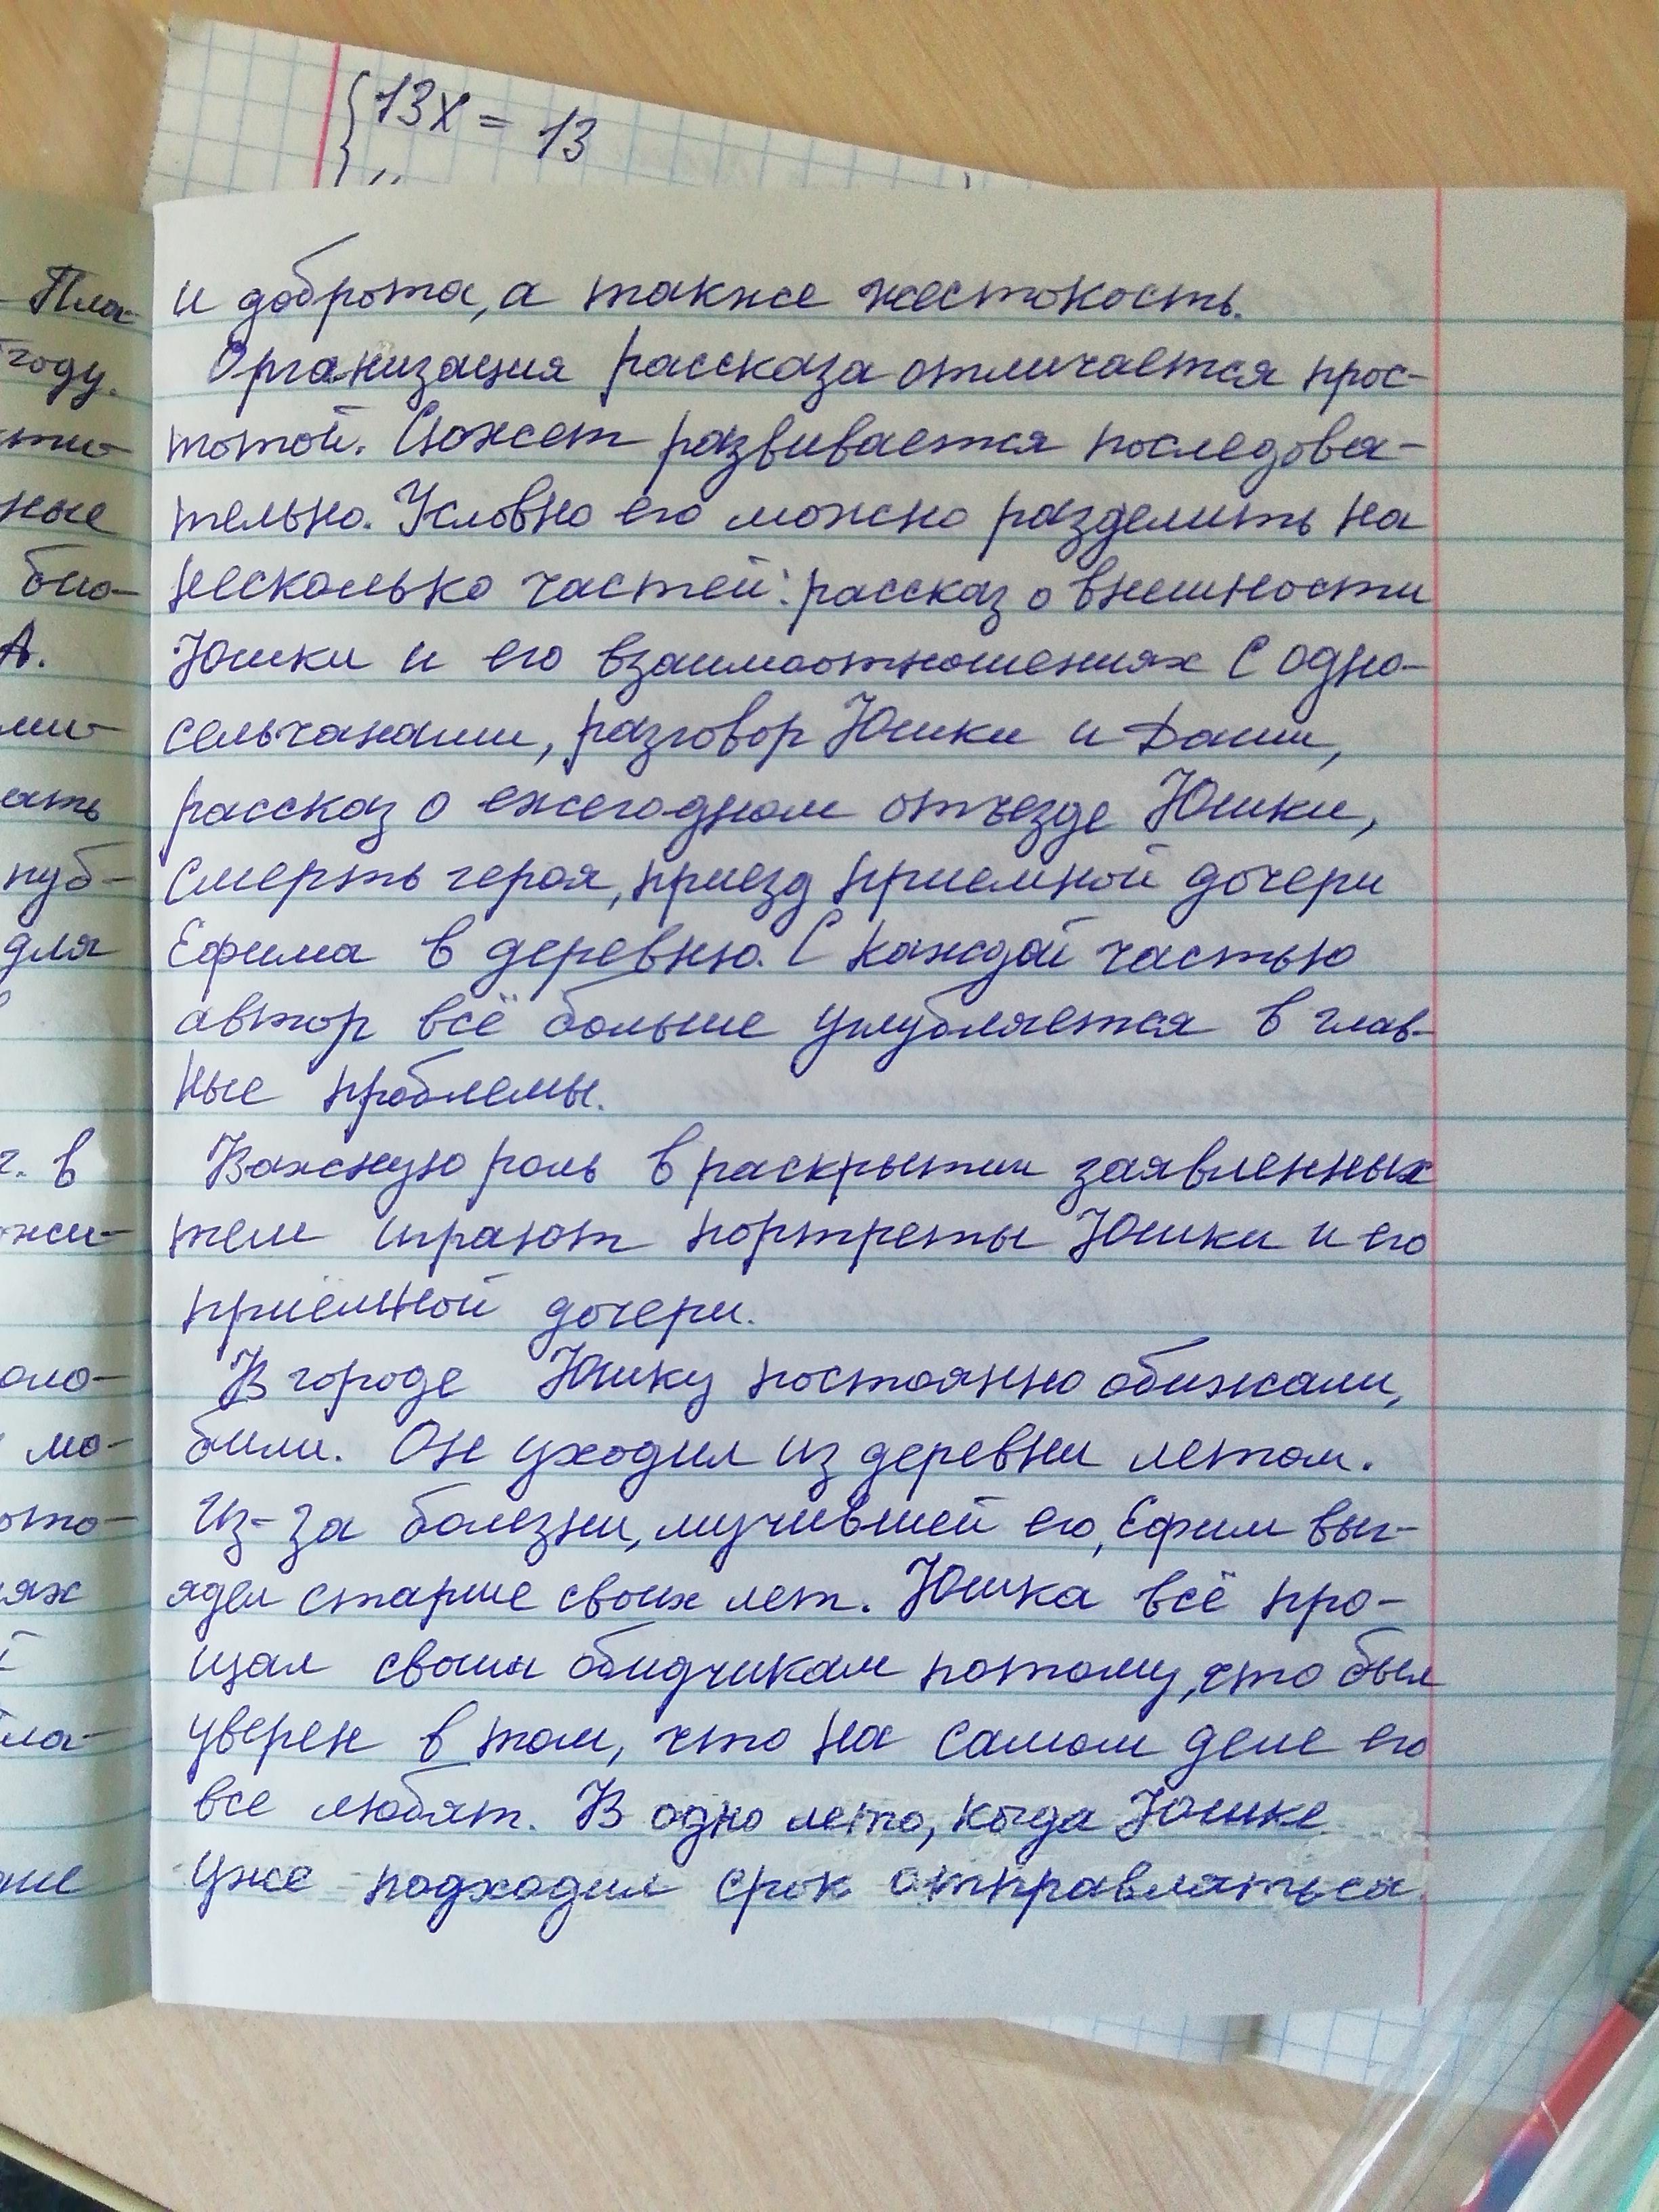 {13x = 13
и доброта, а также жестокость.
Организация рассказа отличается прос-
тотой. Сюжет развивается последова-
тельно. Условно его можно разделить на
несколько частей: рассказ о внешности
Юшки и его взаимоотношениях с одно-
сельчанами, разговор Юшки и Даши,
рассказ о ежегодном отъезде Юшки,
смерть героя, приезд приемной дочери
Ефима в деревню. С каждой частью
автор всё больше углубляется в глав-
ные проблемы.
Важную роль в раскрытии заявленных
тем играют портреты Юшки и его
приёмной дочери.
В городе Юшку постоянно обижали,
били. Он уходил из деревни летом.
Из-за болезни, мучившей его, Ефим выг-
ядел старше своих лет. Юшка всё про-
щал своим обидчикам потому, что был
уверен в том, что на самом деле его
все любят. В одно лето, когда Юшке
уже подходил срок отправляться
Пла-
году.
ные
био-
А.
ать
пуб-
для
г. в
оло-
мо-
ото-
ях
ла-